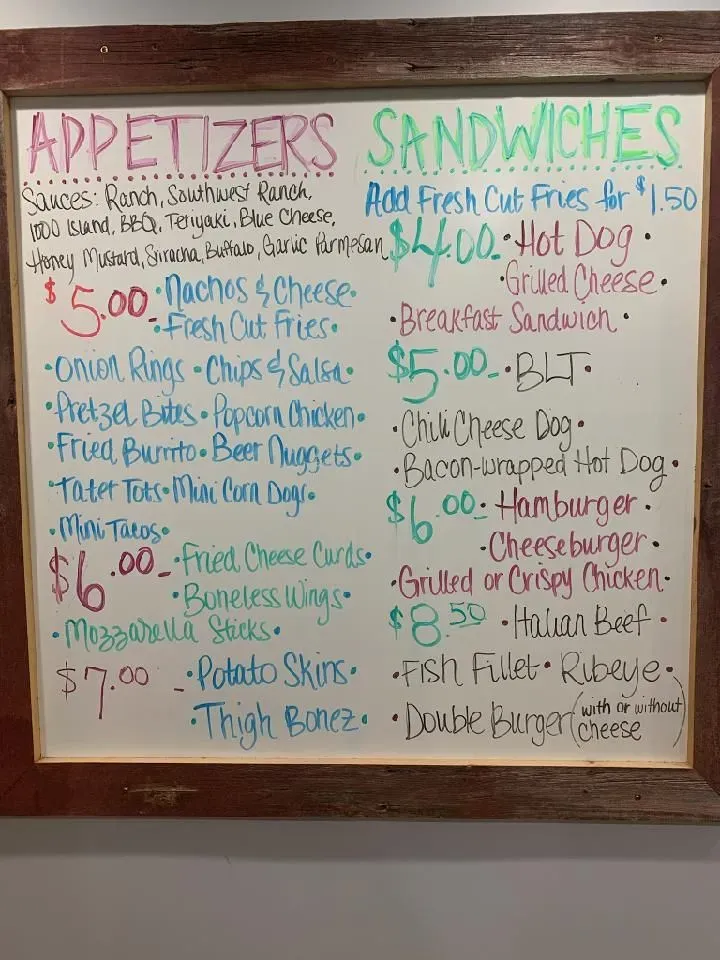 APPETIZERS
Sauces: Ranch, Southwest Ranch,
1000 Island, BBQ, Teriyaki, Blue Cheese,
Honey Mustard, Siracha, Buffalo, Garlic Parmesan
$5.00- •Nachos & Cheese•
•Fresh Cut Fries•
•Onion Rings •Chips & Salsa•
•Pretzel Bites• Popcorn Chicken•
•Fried Burrito• Beer Nuggets•
•Tater Tots•Mini Corn Dogs•
•Mini Tacos•
$6.00- •Fried Cheese Curds•
•Boneless Wings•
•Mozzarella Sticks•
$7.00 - •Potato Skins•
•Thigh Bonez•
SANDWICHES
Add Fresh Cut Fries for $1.50
$4.00- •Hot Dog •
•Grilled Cheese•
•Breakfast Sandwich •
$5.00- •BLT•
•Chili Cheese Dog•
•Bacon-wrapped Hot Dog•
$6.00- • Hamburger •
•Cheeseburger •
•Grilled or Crispy Chicken•
$8.50 •Italian Beef •
•Fish Fillet• Ribeye•
•Double Burger (with or without cheese)